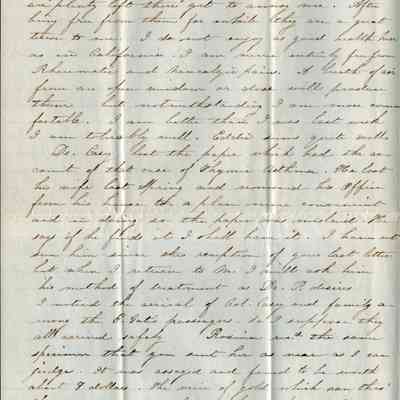 are plenty left there yet to annoy me. After
being free from them for awhile they are a great
to me. I do not enjoy as good health here
as in California. I am never entirely free from
Rheumatic and neuralgic pains. A breath of air
from an open window or door will produce
them but notwithstanding I am more comfortable.
I am better than I was last week
I am tolerably well. Eddie seems quite well
Dr. lost the paper which had the account
of that case of Thymic Asthma. He lost
his wife last Spring and removed his office
from his house to a place more convenient
and in doing so the paper was mislaid. He
says if he finds it I shall have it. I have not
seen him since the reception of your last letter
but when I return to I will ask him
his method of treatment as Dr. R. desires
I noticed the arrival of Col. and family among
the passengers. So I suppose they
all arrived safely Rosina the same
specimen that you sent her as near as I can
judge. It was assayed and found to be worth
about dollars. The of gold which